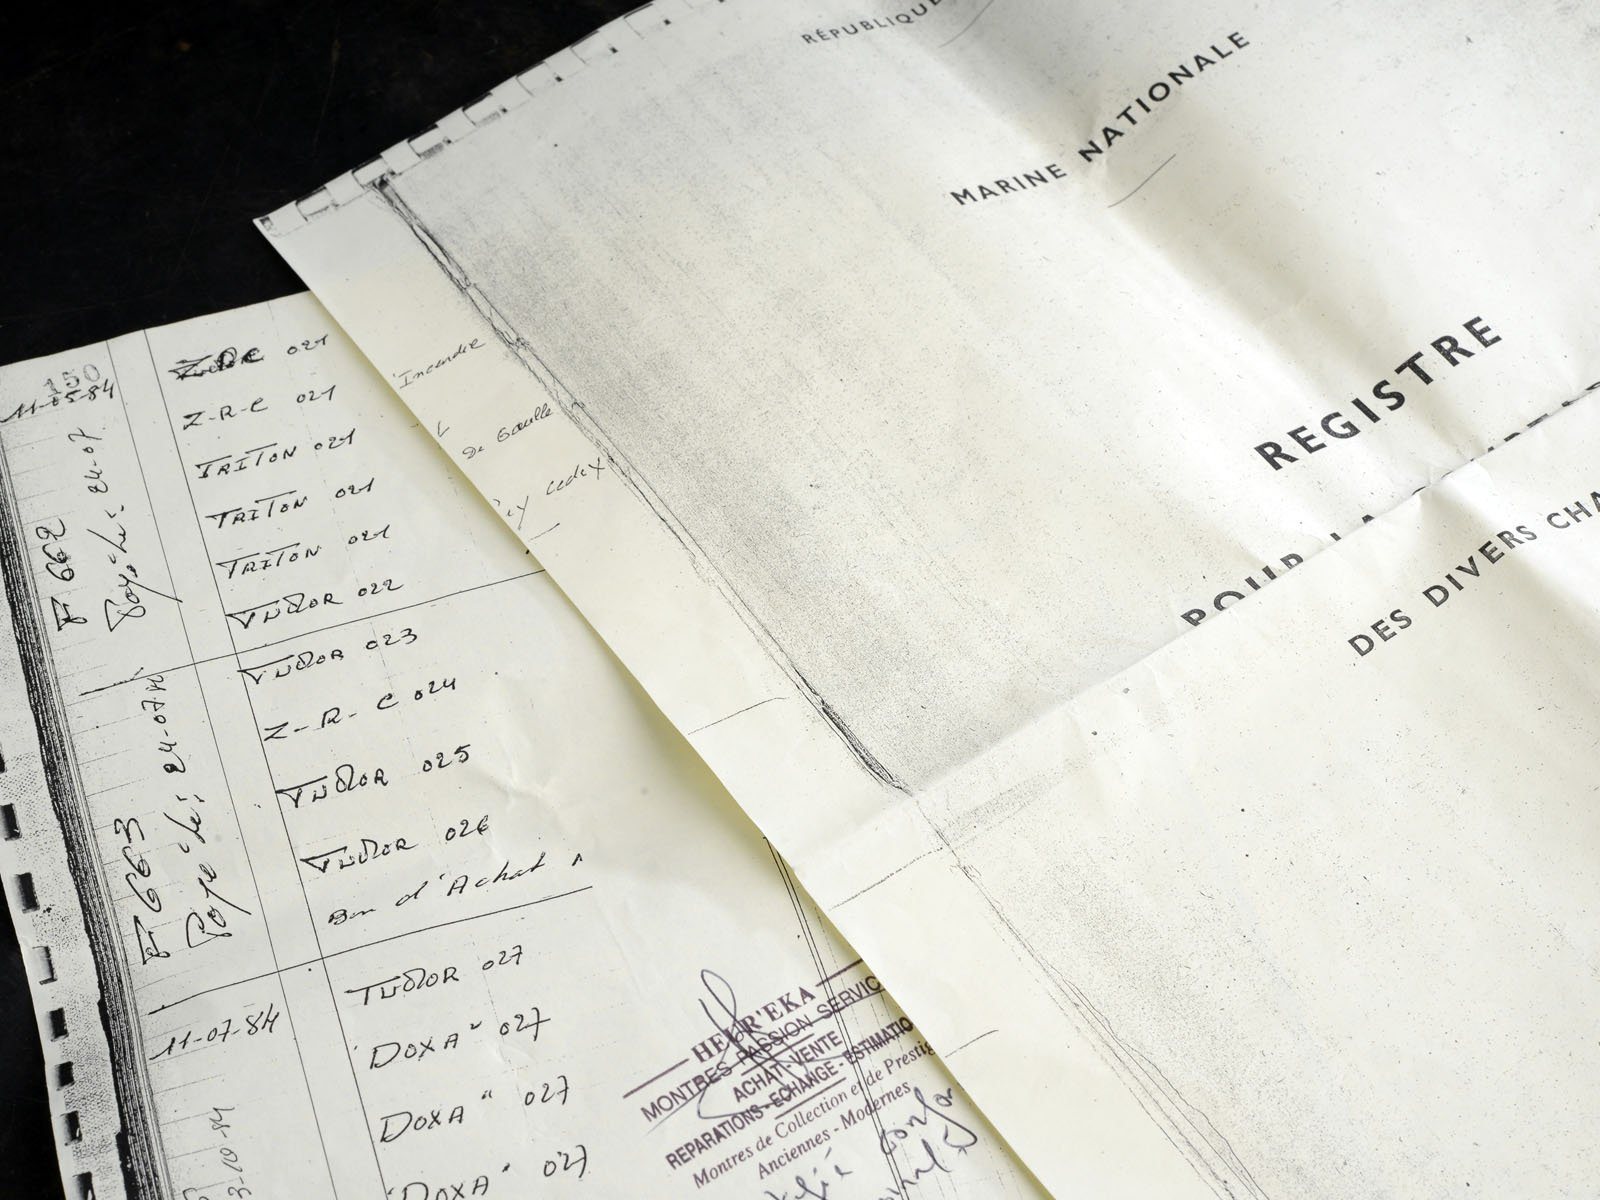 RÉPUBLIQUE
MARINE NATIONALE
REGISTRE
POUR LA
DES DIVERS CHA
150
11-05-84
F 662
Payé le: 24-07
Z.R.C 021
Z-R-C 021
TRITON 021
TRITON 021
TRITON 021
TUDOR 022
Incendie
De Gaulle
Cedex
F 663
Payé le: 24-07
TUDOR 023
Z-R-C 024
TUDOR 025
TUDOR 026
Bon d'Achat
11-07-84
TUDOR 027
DOXA " 027
DOXA " 027
DOXA " 027
HEUR'EKA
MONTRES PASSION SERVIC
ACHAT-VENTE
REPARATIONS-ECHANGE-ESTIMATIO
Montres de Collection et de Prestig
Anciennes - Modernes